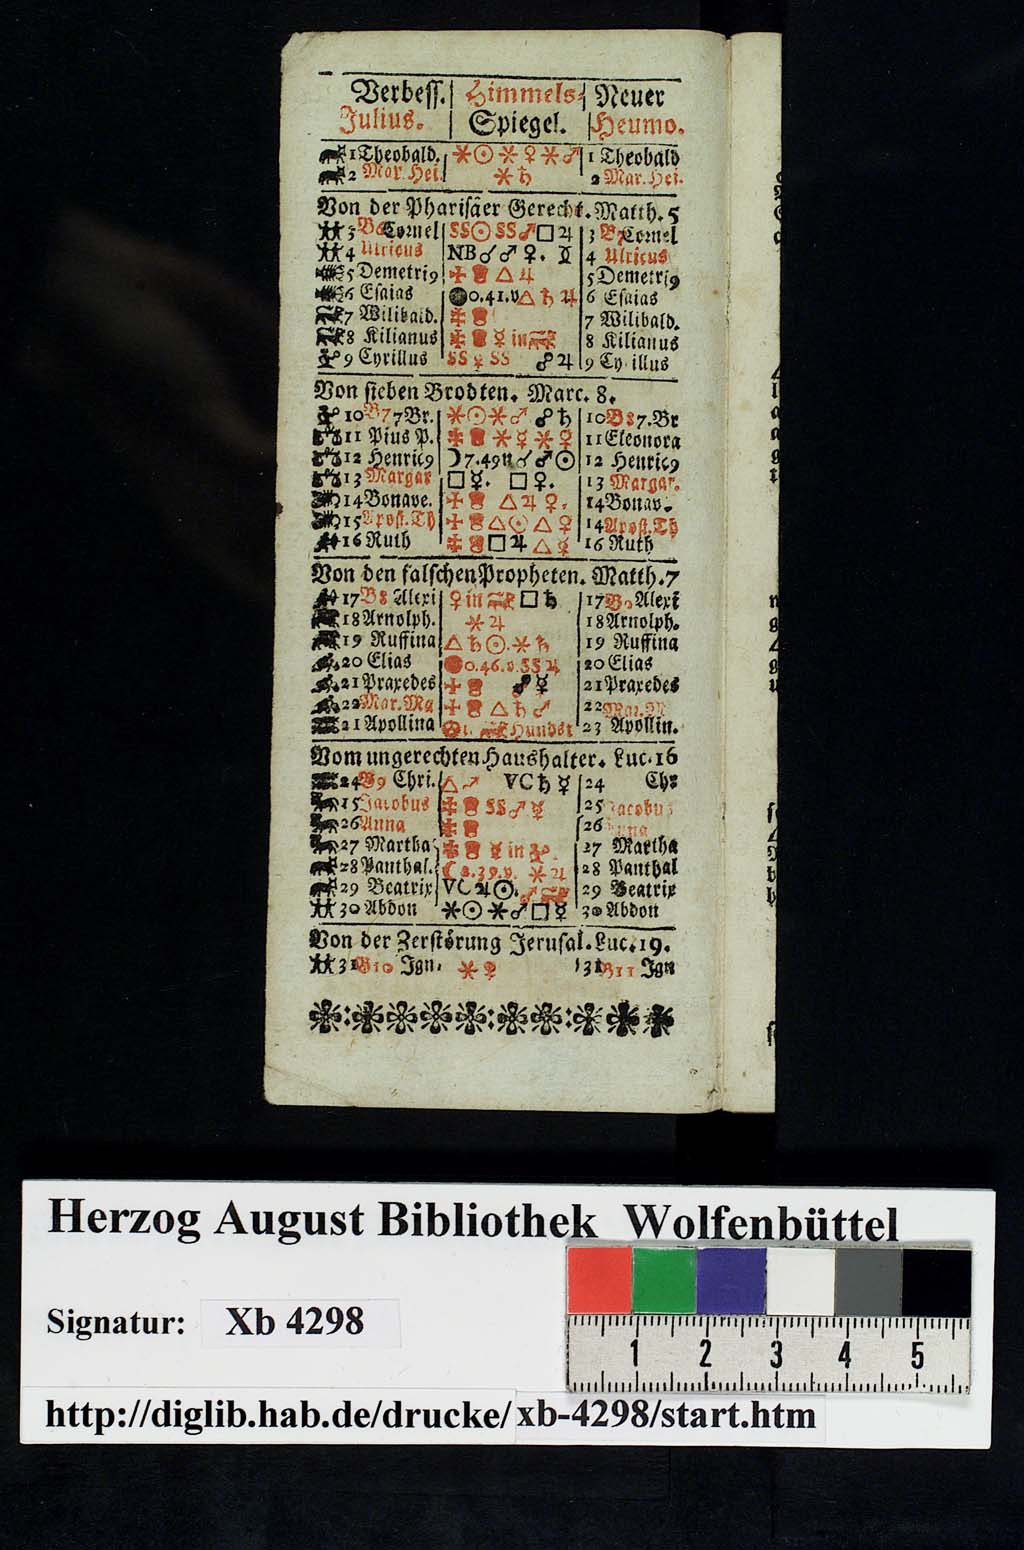 Verbess. Himmels- Neuer
Julius. Spiegel. Heumo.
1 Theobald. ⚹ ☉ ⚹ ♀ ⚹ ♂ 1 Theobald
2 Mar. Hei. ⚹ ♄ 2 Mar. Hei.
Von der Pharisäer Gerecht. Matth. 5
3 B6 Cornel SS ☉ SS ♂ □ ♃ 3 B7 Cornel
4 Ulricus NB ☌ ♂ ♀. 4 Ulricus
5 Demetri9 △ ♃ 5 Demetri9
6 Esaias 0.41.v △ ♄ ♃ 6 Esaias
7 Wilibald. 7 Wilibald.
8 Kilianus ☿ in 8 Kilianus
9 Cyrillus SS ☿ SS ☍ ♃ 9 Cyrillus
Von sieben Brodten. Marc. 8.
10 B7 7 Br. ⚹ ☉ ⚹ ♂ ☍ ♄ 10 B8 7. Br
11 Pius P. ⚹ ☿ ⚹ ♀ 11 Eleonora
12 Henric9 ☽ 7.49 n ☌ ♂ ☉ 12 Henric9
13 Margar □ ☿. □ ♀. 13 Margar.
14 Bonave. △ ♃ ♀. 14 Bonav.
15 Apost. Th △ ☉ △ ♀ 14 Apost. Th
16 Ruth □ ♃ △ ☿ 16 Ruth
Von den falschen Propheten. Matth. 7
17 B8 Alexi ♀ in □ ♄ 17 B9 Alexi
18 Arnolph. ⚹ ♃ 18 Arnolph.
19 Ruffina △ ♄ ☉. ⚹ ♄ 19 Ruffina
20 Elias 0.46.v. SS ♃ 20 Elias
21 Praxedes ☍ ☿ 21 Praxedes
22 Mar. Ma △ ♄ ♂ 22 Mar. M
21 Apollina Hundst 23 Apollin.
Vom ungerechten Haushalter. Luc. 16
24 B9 Chri. △ ♂ VC ♄ ☿ 24 Chr
15 Jacobus SS ♂ ☿ 25 Jacobus
26 Anna 26 Anna
27 Martha ☿ in 27 Martha
28 Panthal. ☾ 8.39.v. ⚹ ♃ 28 Panthal
29 Beatrix VC ♃ ☉. ♂ 29 Beatrix
30 Abdon ⚹ ☉ ⚹ ♂ □ ☿ 30 Abdon
Von der Zerstörung Jerusal. Luc. 19.
31 B10 Ign. ⚹ ♀ 31 B11 Ign
Herzog August Bibliothek Wolfenbüttel
Signatur: Xb 4298
1 2 3 4 5
http://diglib.hab.de/drucke/xb-4298/start.htm